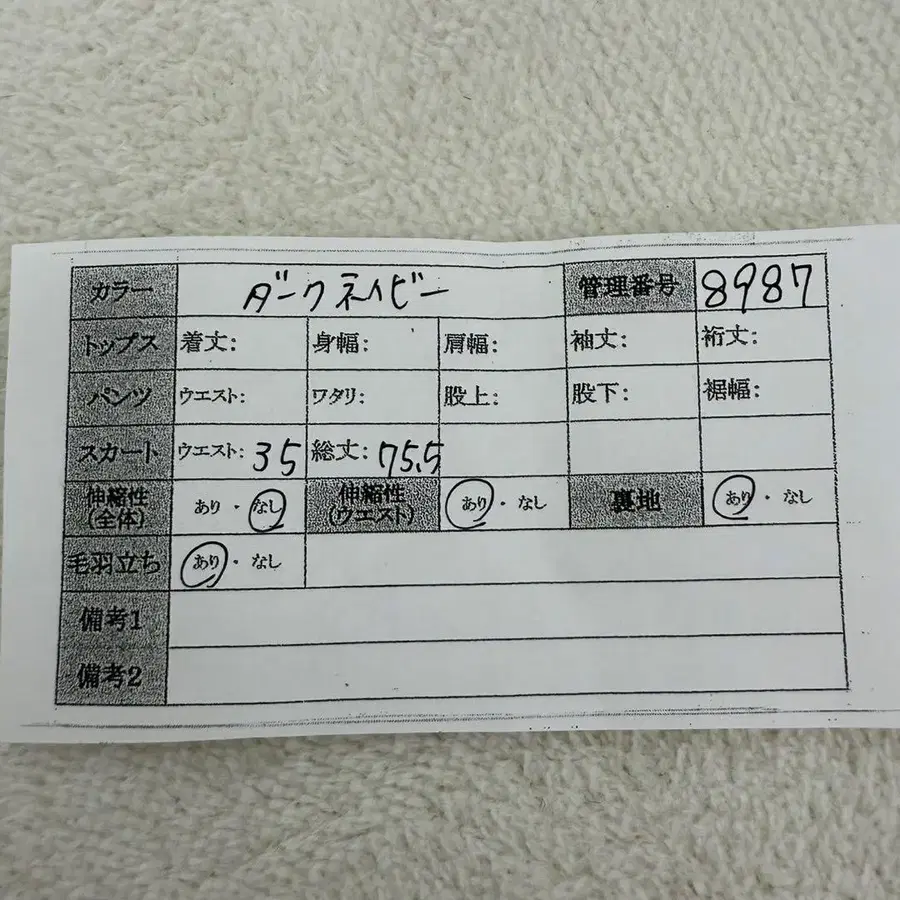 カラー ダークネイビー 管理番号 8987
トップス 着丈: 身幅: 肩幅: 袖丈: 裄丈:
パンツ ウエスト: ワタリ: 股上: 股下: 裾幅:
スカート ウエスト: 35 総丈: 75.5
伸縮性(全体) あり・なし 伸縮性(ウエスト) あり・なし 裏地 あり・なし
毛羽立ち あり・なし
備考1
備考2